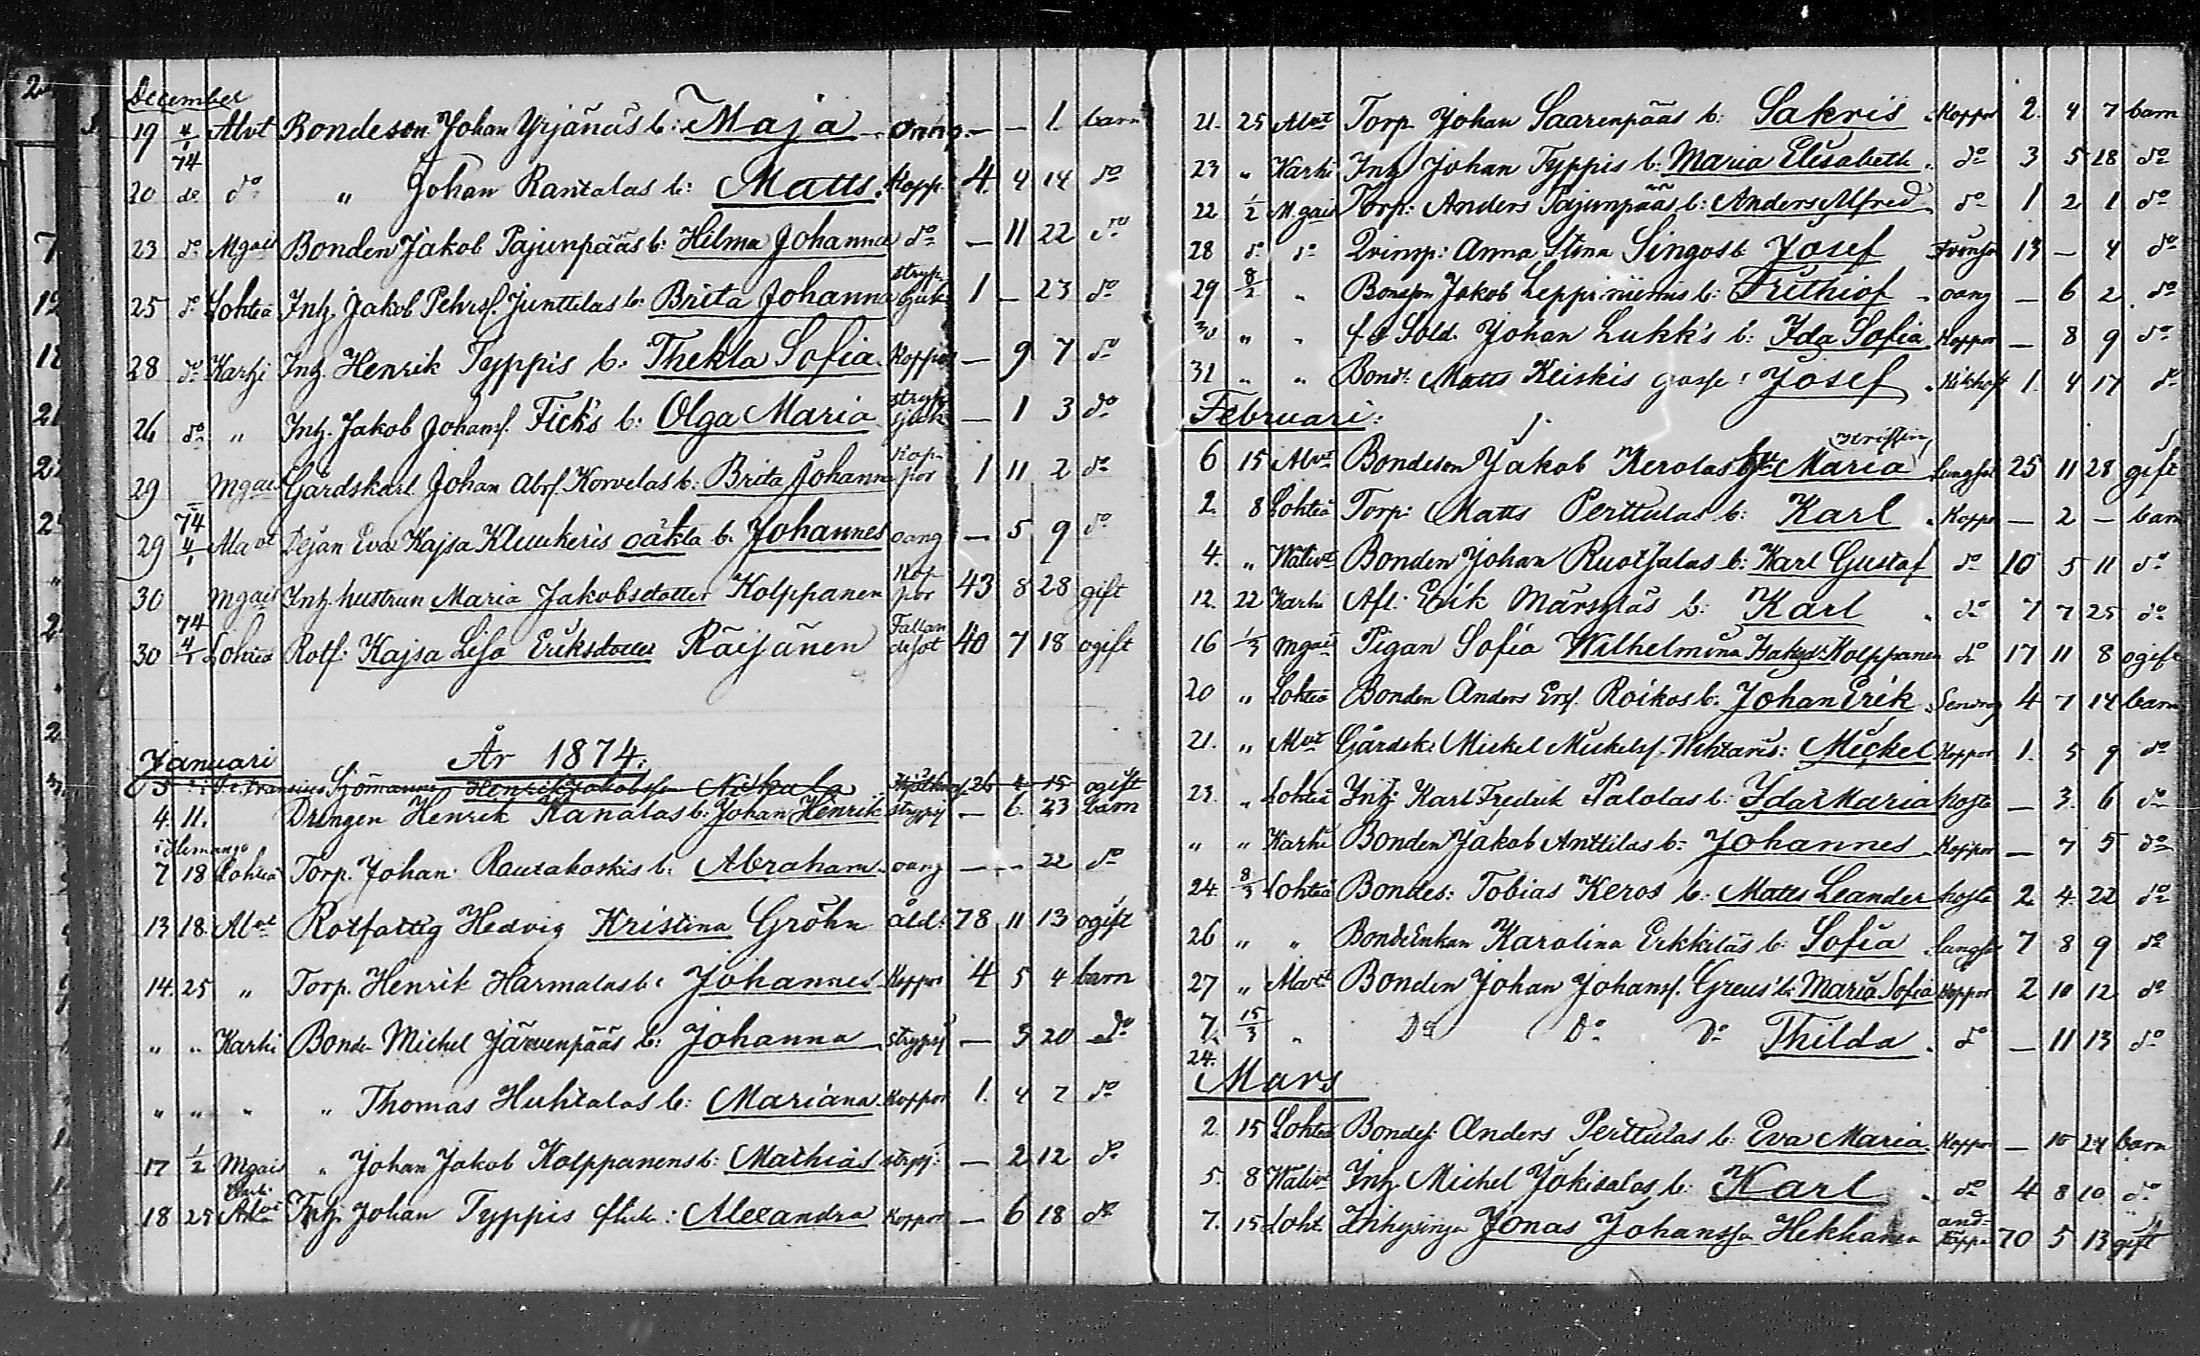 December
19 4/1 74 Alvt Bondeson Johan Yrjänäs b: Maja oning. — — 1 barn
20 do do " Johan Rantalas b: Matts Kopp 4 4 14 do
23 do Mgais Bonden Jakob Pajunpääs b: Hilma Johanna do — 11 22 do
25 do Lohteå Inh. Jakob Pehrsf. Junttilas b: Brita Johanna strypsjuk 1 — 23 do
28 do Karhi Inh. Henrik Typpis b: Thekla Sofia Koppor — 9 7 do
26 do " Inh. Jakob Johansf. Ficks b: Olga Maria strypsjuk — 1 3 do
29 Mgais Gårdskarl Johan Abrf. Korvelas b: Brita Johanna Koppor 1 11 2 do
29 74 4/1 Alavt Dejan Eva Kajsa Kluukeris oäkta b. Johannes oang — 5 9 do
30 Mgais Inh. hustrun Maria Jakobsdotter Kolppanen Koppor 43 8 28 gift
30 74 4/1 Lohteå Rotf. Kajsa Lisa Eriksdotter Räijänen Fallandesot 40 7 18 ogift
Januari År 1874.
Sjömannen Henrik Jakobsson Niskala 26 15 ogift
4. 11. Drengen Henrik Kanalas b: Johan Henrik strypsj — 6 23 barn
i Himango
7 18 Lohteå Torp. Johan Rautakoskis b. Abraham oang — — 22 do
13 18 Alvt Rotfattig Hedvig Kristina Gröhn åld: 78 11 13 ogift
14. 25 " Torp. Henrik Harmalas b: Johannes Koppor 4 5 4 barn
" " Karhi Bond. Michel Järvenpääs b: Johanna strypsj — 3 20 do
" " " " Thomas Huhtalas b: Mariana Koppor 1. 4 2 do
17 1/2 Mgais " Johan Jakob Kolppanens b: Mathias strypsj: — 2 12 do
18 25 Karhi Inh. Johan Typpis flicka: Alexandra Koppor — 6 18 do
21. 25 Alvt Torp. Johan Saarenpääs b: Sakris Koppor 2. 4 7 barn
23 " Karhi Inh. Johan Typpis b: Maria Elisabeth do 3 5 28 do
22 1/2 Mgais Torp: Anders Pajunpääs b: Anders Alfred do 1 2 1 do
28 do do Qvinsp: Anna Stina Singos b. Josef 13 — 4 do
29 8/2 " Bondson Jakob Leppiniemis b: Frithiof oang — 6 2 do
30 " " f.d Sold. Johan Lukk's b: Ida Sofia Koppor — 8 9 do
31 " " Bond. Matts Keiskis gosse: Josef Kikhost 1. 4 17 do
Februari:
6 15 Alvt Bondeson Jakob Kerolas hu: Maria Kristin lungsot 25 11 28 gift
2. 8 Lohteå Torp: Matts Perttulas b: Karl Koppor — 2 — barn
4. " Wälivt Bonden Johan Ruotsalas b: Karl Gustaf do 10 5 11 do
12. 22 Karhi Afl. Erik Märsyläs b: Karl do 7 7 25 do
16 1/3 Mgais Pigan Sofia Wilhelmina Isaksd. Kolppanen do 17 11 8 ogift
20 " Lohteå Bonden Anders Ersf. Roikos b. Johan Erik 4 7 14 barn
21. " Alvt Gårdsk: Mickel Mickelsf. Wihtaris: Mickel Koppor 1. 5 9 do
23. " Lohteå Inh: Karl Fredrik Palolas b: Ida Maria hosta — 3. 6 do
" " Karhi Bonden Jakob Anttilas b: Johannes Koppor — 7 5 do
24. 8/3 Lohteå Bondes: Tobias Keros b: Matts Leander hosta 2 4. 22 do
26 " " Bondeenkan Karolina Erkkiläs b: Sofia lungsot 7 8 9 do
27 " Alavt Bonden Johan Johansf. Greus' b: Maria Sofia Koppor 2 10 12 do
7. 15/3 " Do Do Do Thilda do — 11 13 do
24.
Mars
2. 15 Lohteå Bondesf: Anders Perttulas b: Eva Maria Koppor — 10 24 barn
5. 8 Wälivt Inh. Michel Jokisalas b: Karl do 4 8 10 do
7. 15 Loht. Inhysinge Jonas Johansson Hekkanen andtäppa 70 5 13 gift